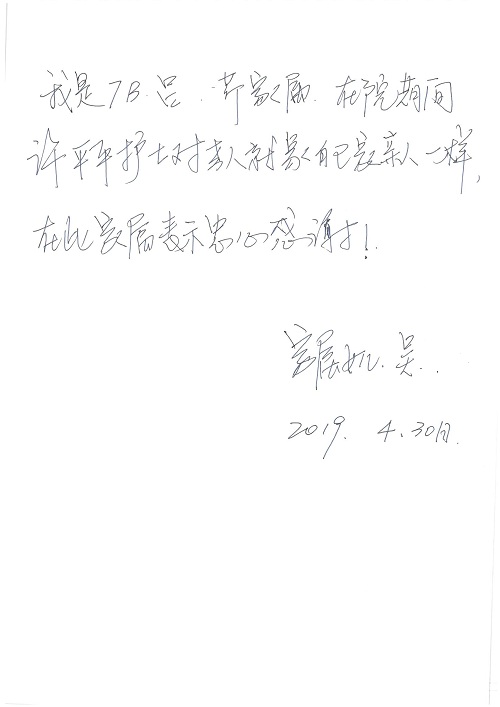 我是7B.吕.芹家属.在院期间
许平平护士对老人就象自己家亲人一样,
在此家属表示忠心感谢!.
家属姚.吴..
2019. 4.30日.